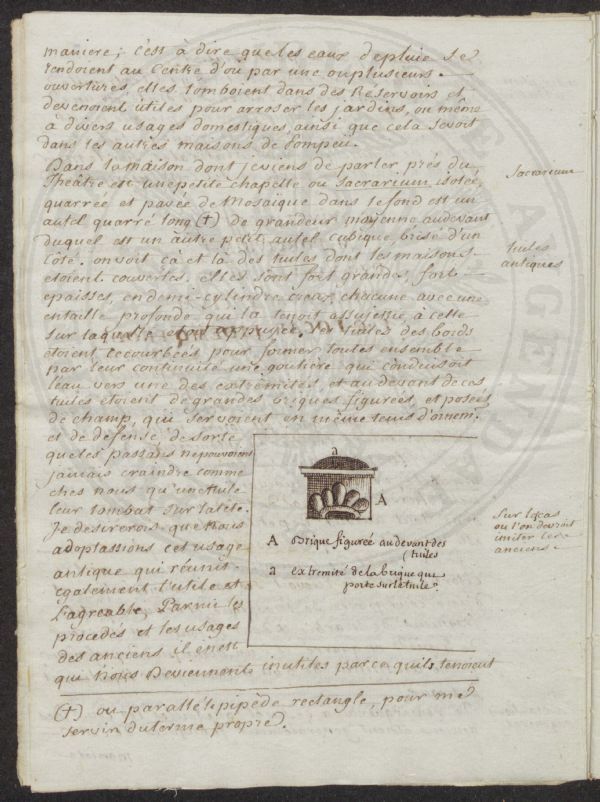 maniere; c'est à dire que les eaux de pluie se
rendoient au Centre d'où par une ou plusieurs
ouvertures, elles tomboient dans des Reservoirs et
devenoient utiles pour arroser les jardins, ou même
à divers usages domestiques, ainsi que cela se voit
dans les autres maisons de Pompeii.
Dans la Maison dont je viens de parler près du
Théâtre est une petite chapelle ou Sacrarium isolée,
quarrée et pavée de Mosaique dans le fond est un
autel quarré long (+) de grandeur moyenne au devant
duquel est un autre petit autel cubique brisé d'un
côté. on voit ça et là des tuiles dont les maisons
étoient couvertes, elles sont fort grandes, fort
epaisses, en demi-cylindre creux, chacune avec une
entaille profonde qui la tenoit assujettie à celle
sur laquelle étoit appuyée. Les tuiles des bords
étoient recourbées pour former toutes ensemble
par leur continuité une goutière qui conduisoit
l'eau vers une des extremités, et au devant de ces
tuiles étoient de grandes briques figurées, et posées
de champ, qui servoient en même tems d'ornem.
et de defense de sorte
que les passans ne pouvoient
jamais craindre comme
chés nous qu'une tuile
leur tombat sur la tête.
Je desirerois que nous
adoptassions cet usage
antique qui réunit
egalement l'utile et
l'agreable. Parmi les
procedés et les usages
des anciens il en est
qui nous deviennent inutiles parce qu'ils tenoient
(+) ou parallélepipède rectangle, pour me
servir du terme propre.
Sacrarium
tuiles
antiques
Sur le cas
où l'on devroit
imiter les
anciens
a
A
A Brique figurée au devant des
(tuiles
a extremité de la brique qui
porte sur la tuile.